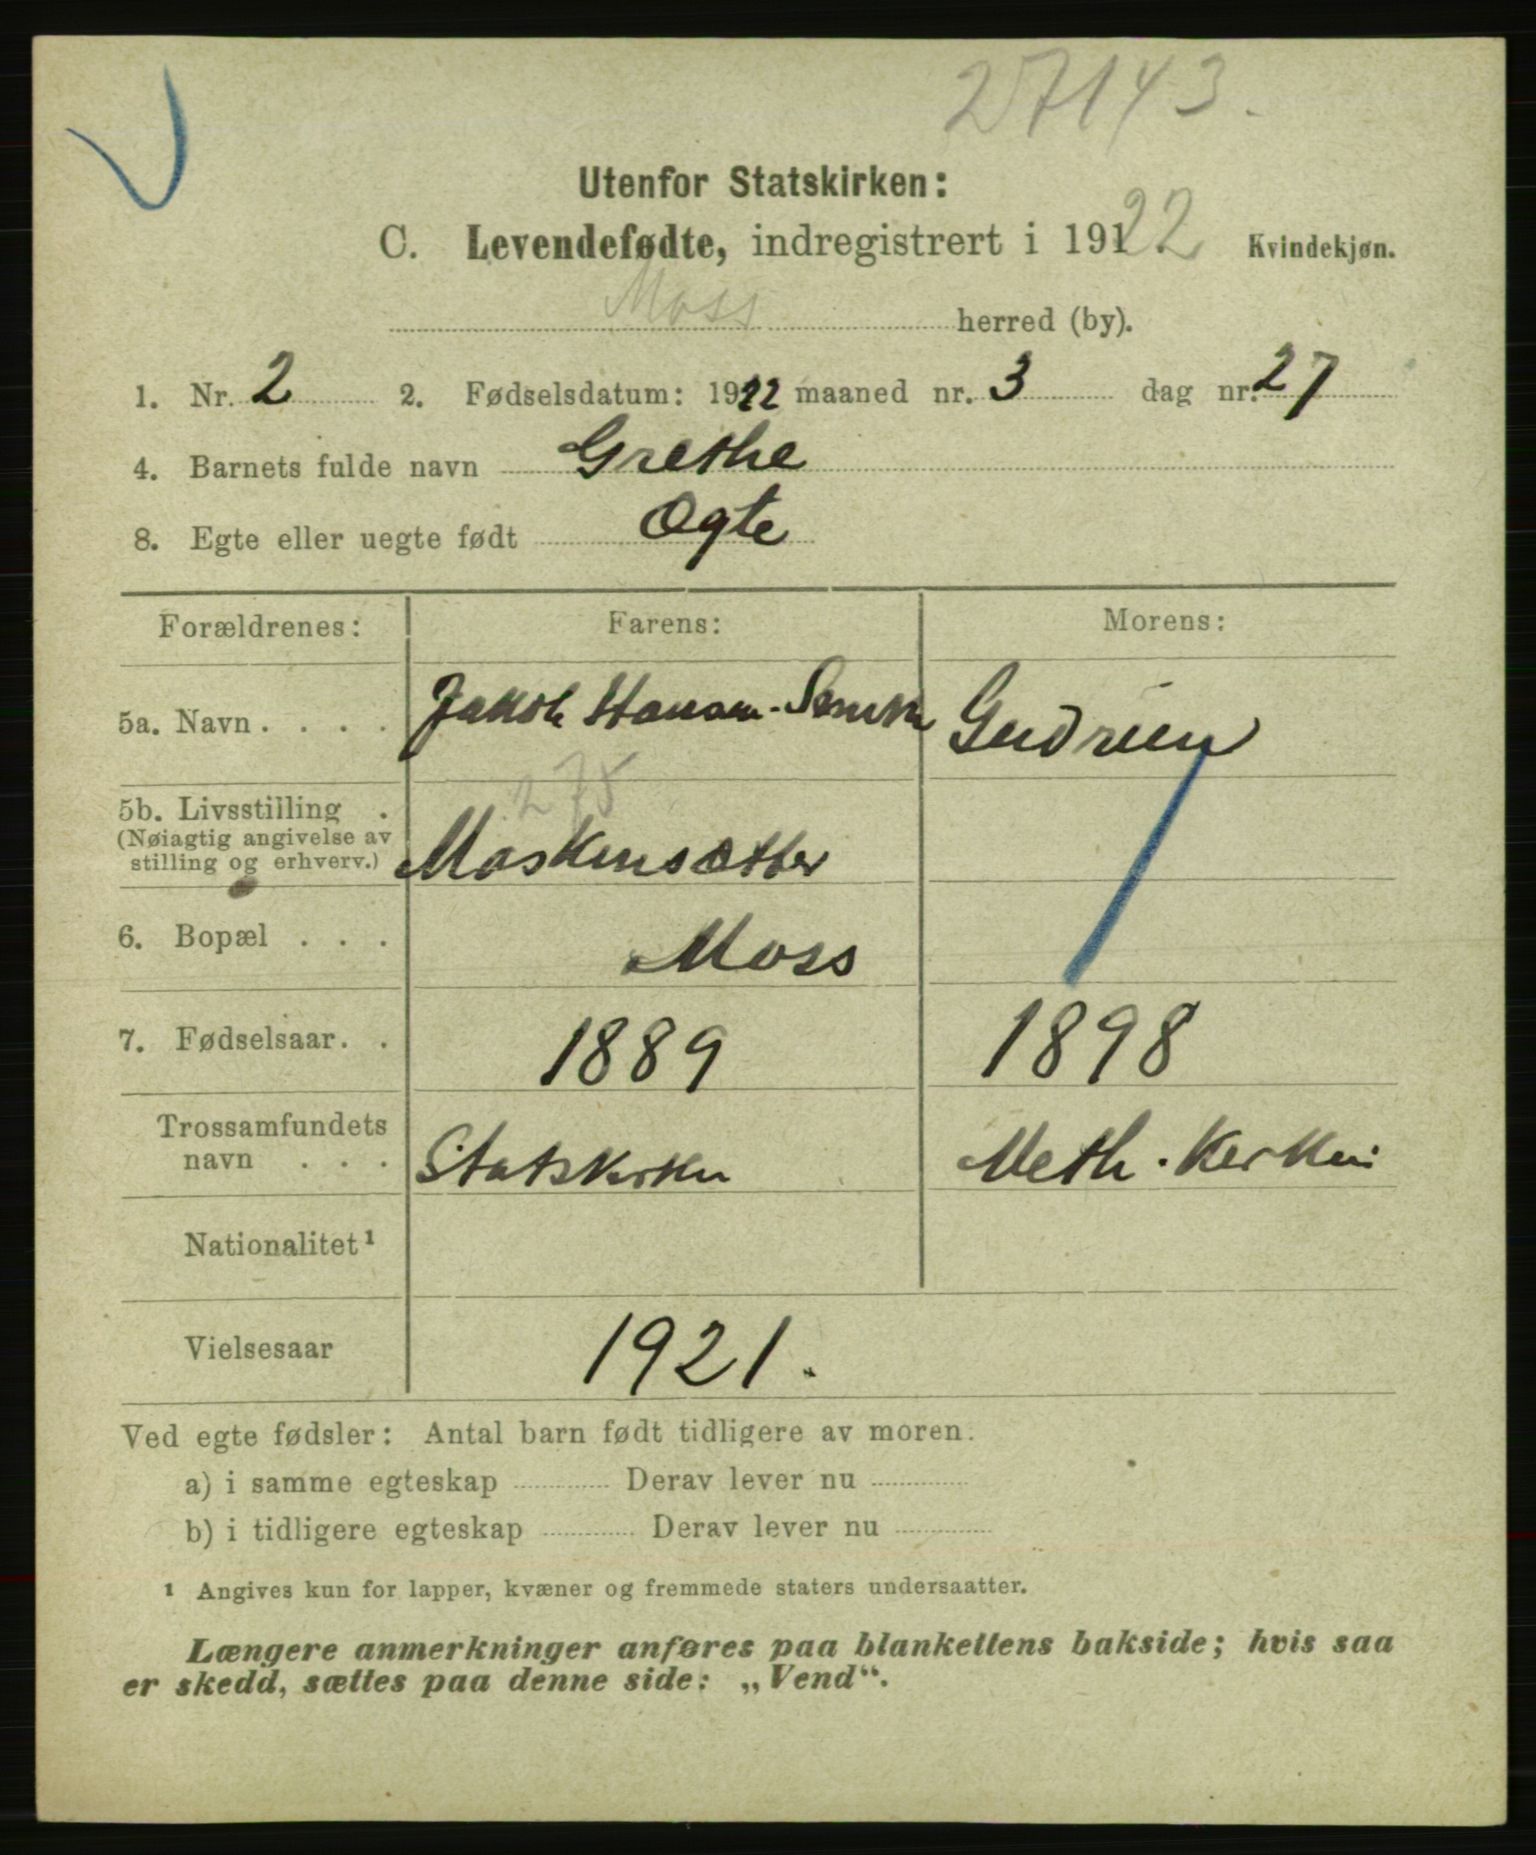 27143.
Utenfor Statskirken:
C. Levendefødte, indregistrert i 19122 Kvindekjøn.
Moss herred (by).
1. Nr. 2 2. Fødselsdatum: 1922 maaned nr. 3 dag nr. 27
4. Barnets fulde navn Grethe
8. Egte eller uegte født Ægte
Forældrenes: Farens: Morens:
5a. Navn . . . . Jakob Gudrun
275
5b. Livsstilling .
(Nøiagtig angivelse av
stilling og erhverv.) Maskinsætter
6. Bopæl . . . Moss
7. Fødselsaar. . 1889 1898
Trossamfundets
navn . . . Statskirken Meth. Kirken
Nationalitet¹
Vielsesaar 1921.
Ved egte fødsler: Antal barn født tidligere av moren.
a) i samme egteskap Derav lever nu
b) i tidligere egteskap Derav lever nu
¹ Angives kun for lapper, kvæner og fremmede staters undersaatter.
Længere anmerkninger anføres paa blankettens bakside; hvis saa
er skedd, sættes paa denne side: „Vend“.